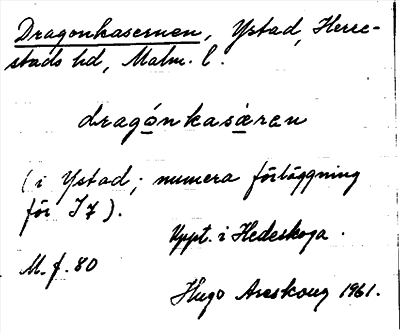 Dragonkasernen, Ystad, Herre-
stads hd, Malm. l.
dragónkasä̀ren
(i Ystad; numera förläggning
för I7).
Uppt. i Hedeskoga.
M.f. 80
Hugo Areskoug 1961.